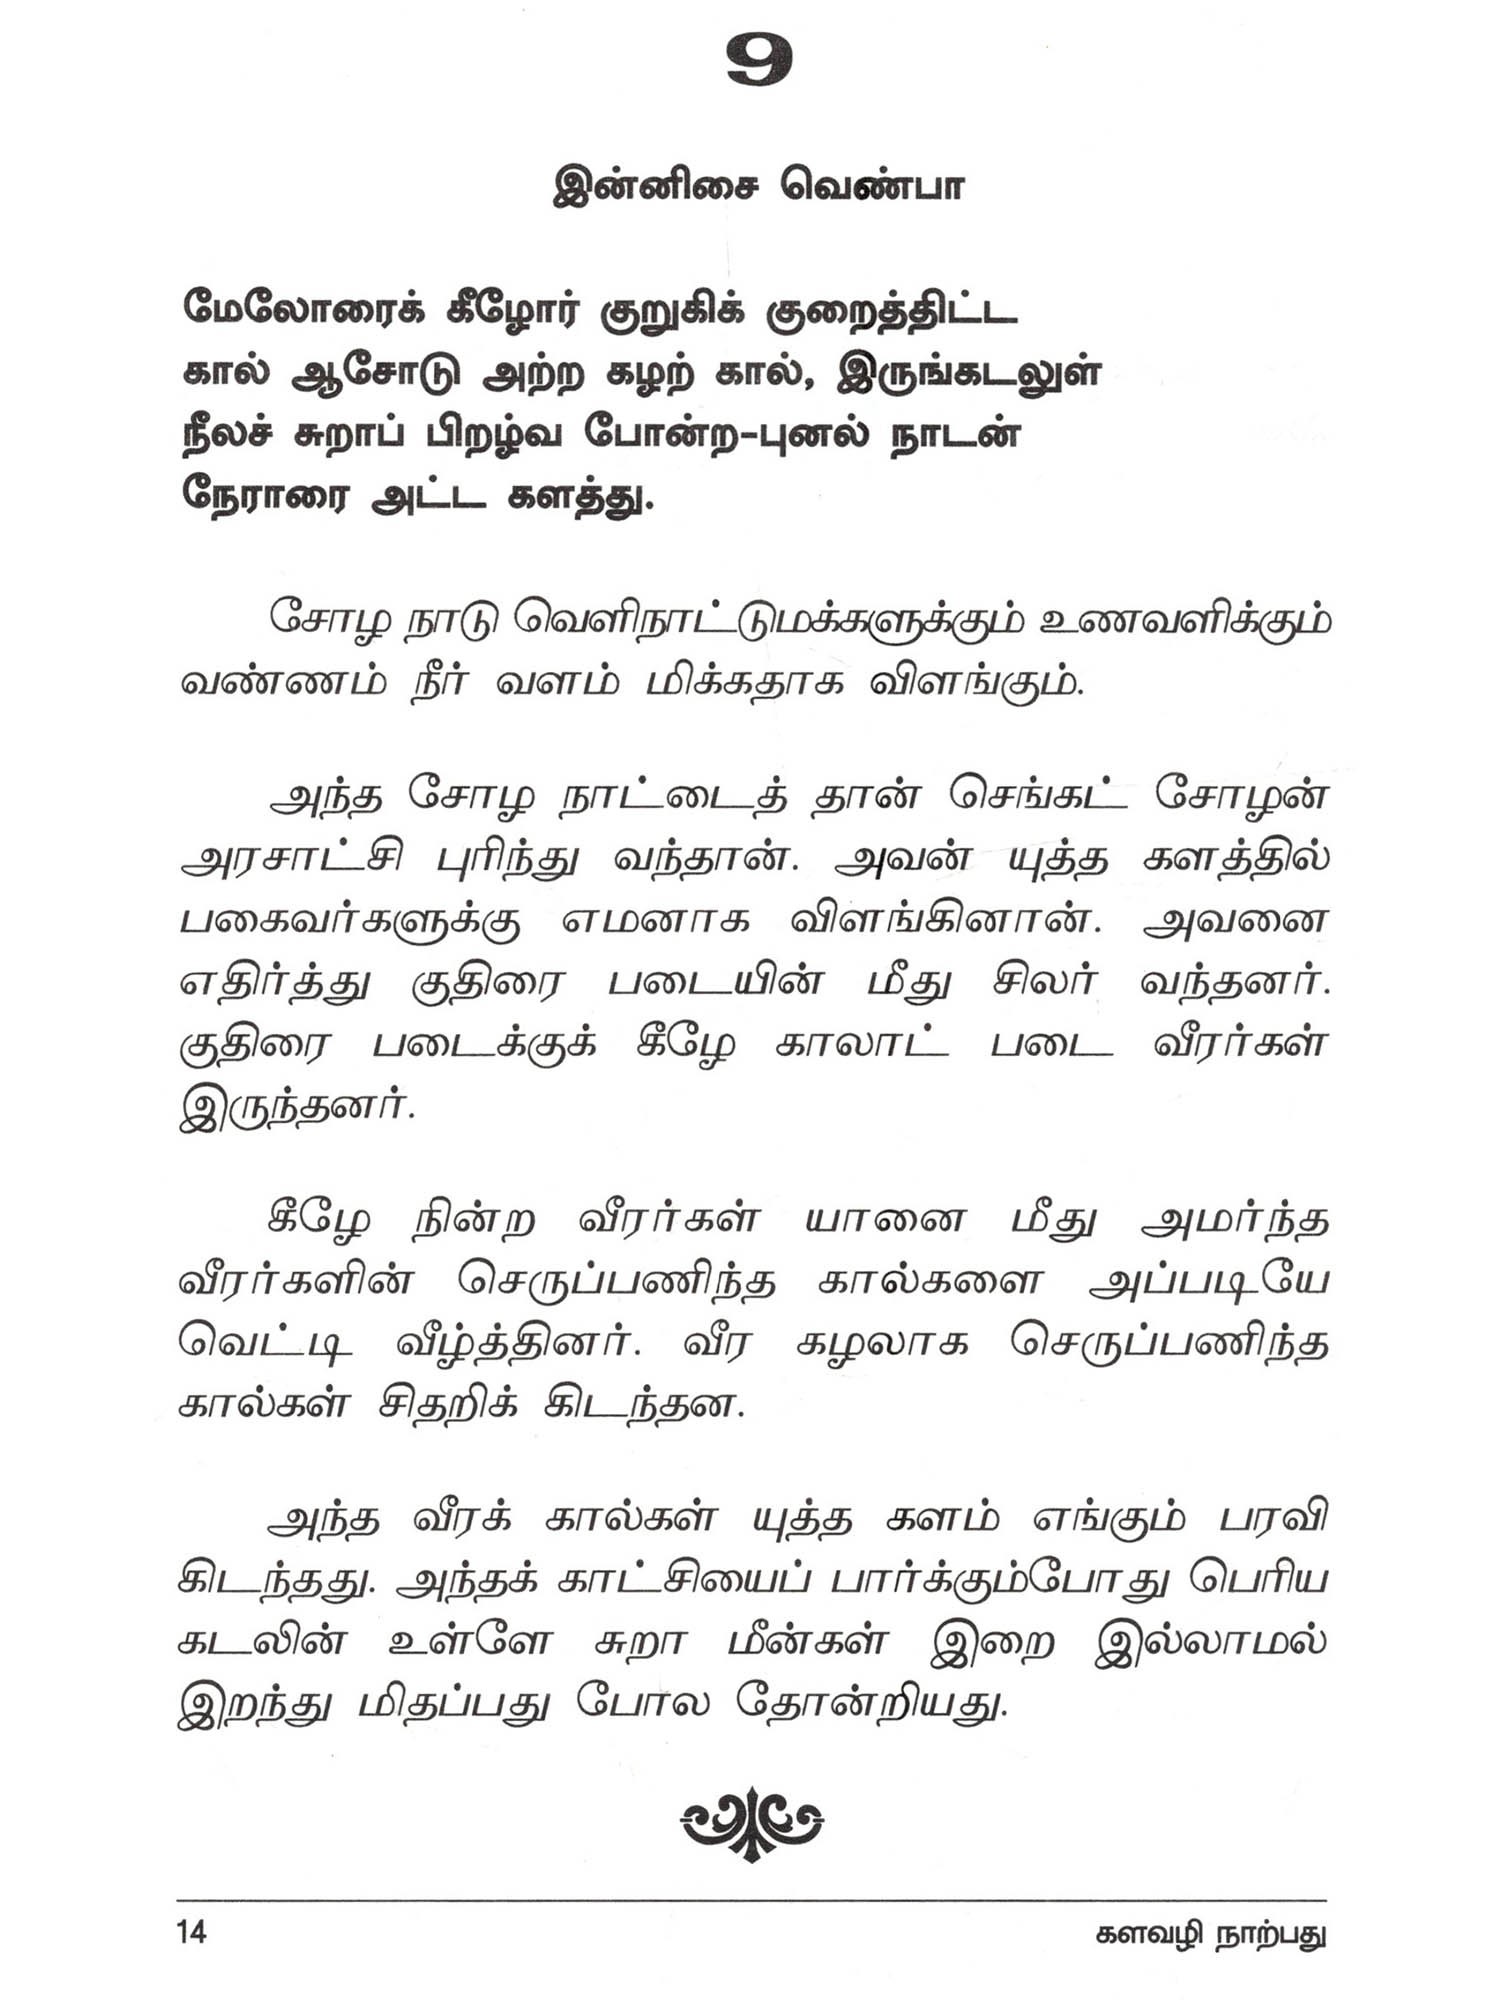 9
இன்னிசை வெண்பா
மேலோரைக் கீழோர் குறுகிக் குறைத்திட்ட
கால் ஆசோடு அற்ற கழற் கால், இருங்கடலுள்
நீலச் சுறாப் பிறழ்வ போன்ற-புனல் நாடன்
நேராரை அட்ட களத்து.
சோழ நாடு வெளிநாட்டுமக்களுக்கும் உணவளிக்கும்
வண்ணம் நீர் வளம் மிக்கதாக விளங்கும்.
அந்த சோழ நாட்டைத் தான் செங்கட் சோழன்
அரசாட்சி புரிந்து வந்தான். அவன் யுத்த களத்தில்
பகைவர்களுக்கு எமனாக விளங்கினான். அவனை
எதிர்த்து குதிரை படையின் மீது சிலர் வந்தனர்.
குதிரை படைக்குக் கீழே காலாட் படை வீரர்கள்
இருந்தனர்.
கீழே நின்ற வீரர்கள் யானை மீது அமர்ந்த
வீரர்களின் செருப்பணிந்த கால்களை அப்படியே
வெட்டி வீழ்த்தினர். வீர கழலாக செருப்பணிந்த
கால்கள் சிதறிக் கிடந்தன.
அந்த வீரக் கால்கள் யுத்த களம் எங்கும் பரவி
கிடந்தது. அந்தக் காட்சியைப் பார்க்கும்போது பெரிய
கடலின் உள்ளே சுறா மீன்கள் இறை இல்லாமல்
இறந்து மிதப்பது போல தோன்றியது.
14
களவழி நாற்பது